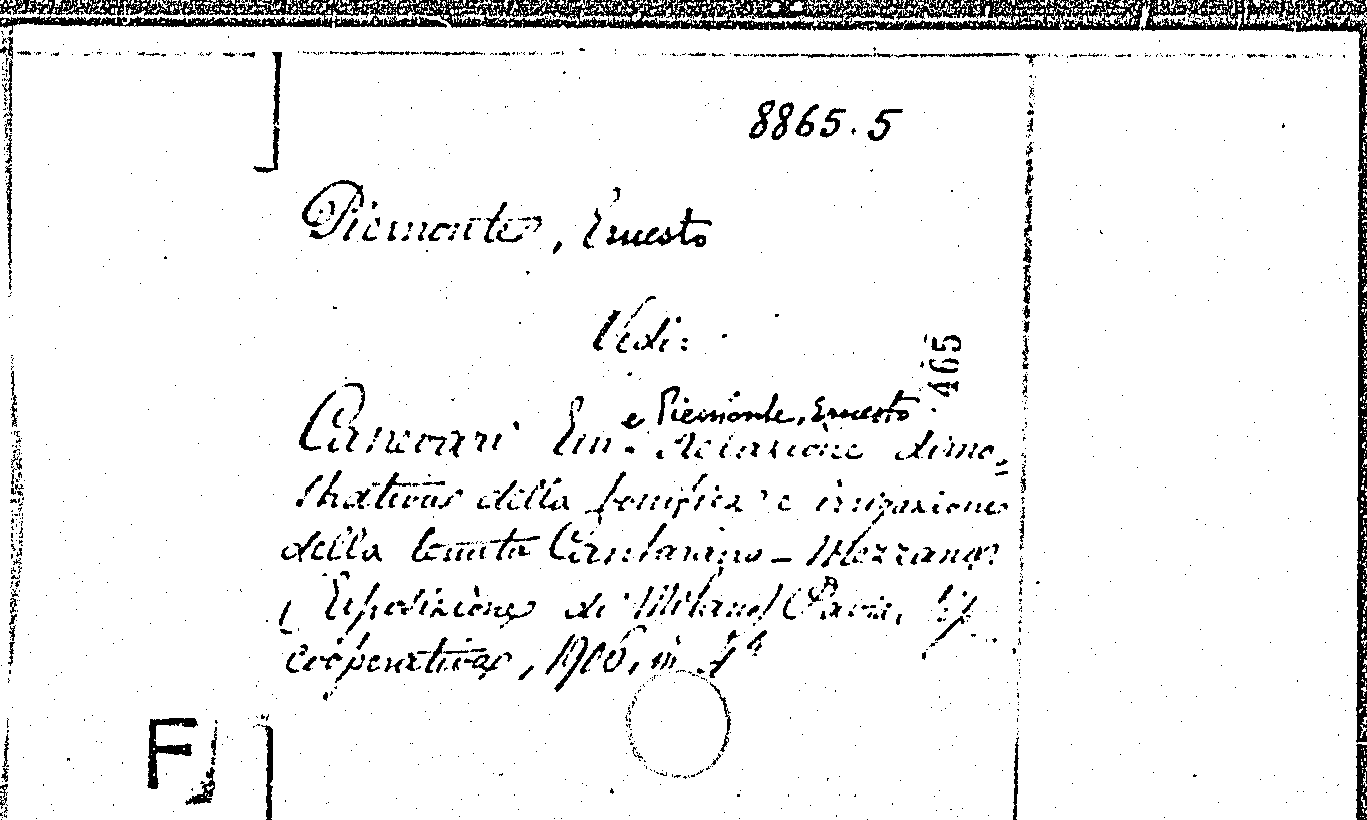 8865.5
Piemonte, Ernesto
Vedi:
465
e Piemonte, Ernesto
Canevari Em. Relazione dimo=
strativa della bonifica e irrigazione
della tenuta Cantarana - Mezzano
(Esposizione di Milano) Pavia, tip.
cooperativa, 1906, in 4°
F